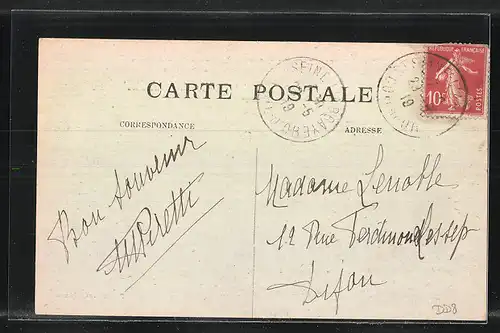 CARTE POSTALE
CORRESPONDANCE
ADRESSE
REPUBLIQUE FRANÇAISE
10c
POSTES
SEINE
Bon souvenir
Madame Lenoble
12 Rue Ferdinand Lessep
Dijon
DD8